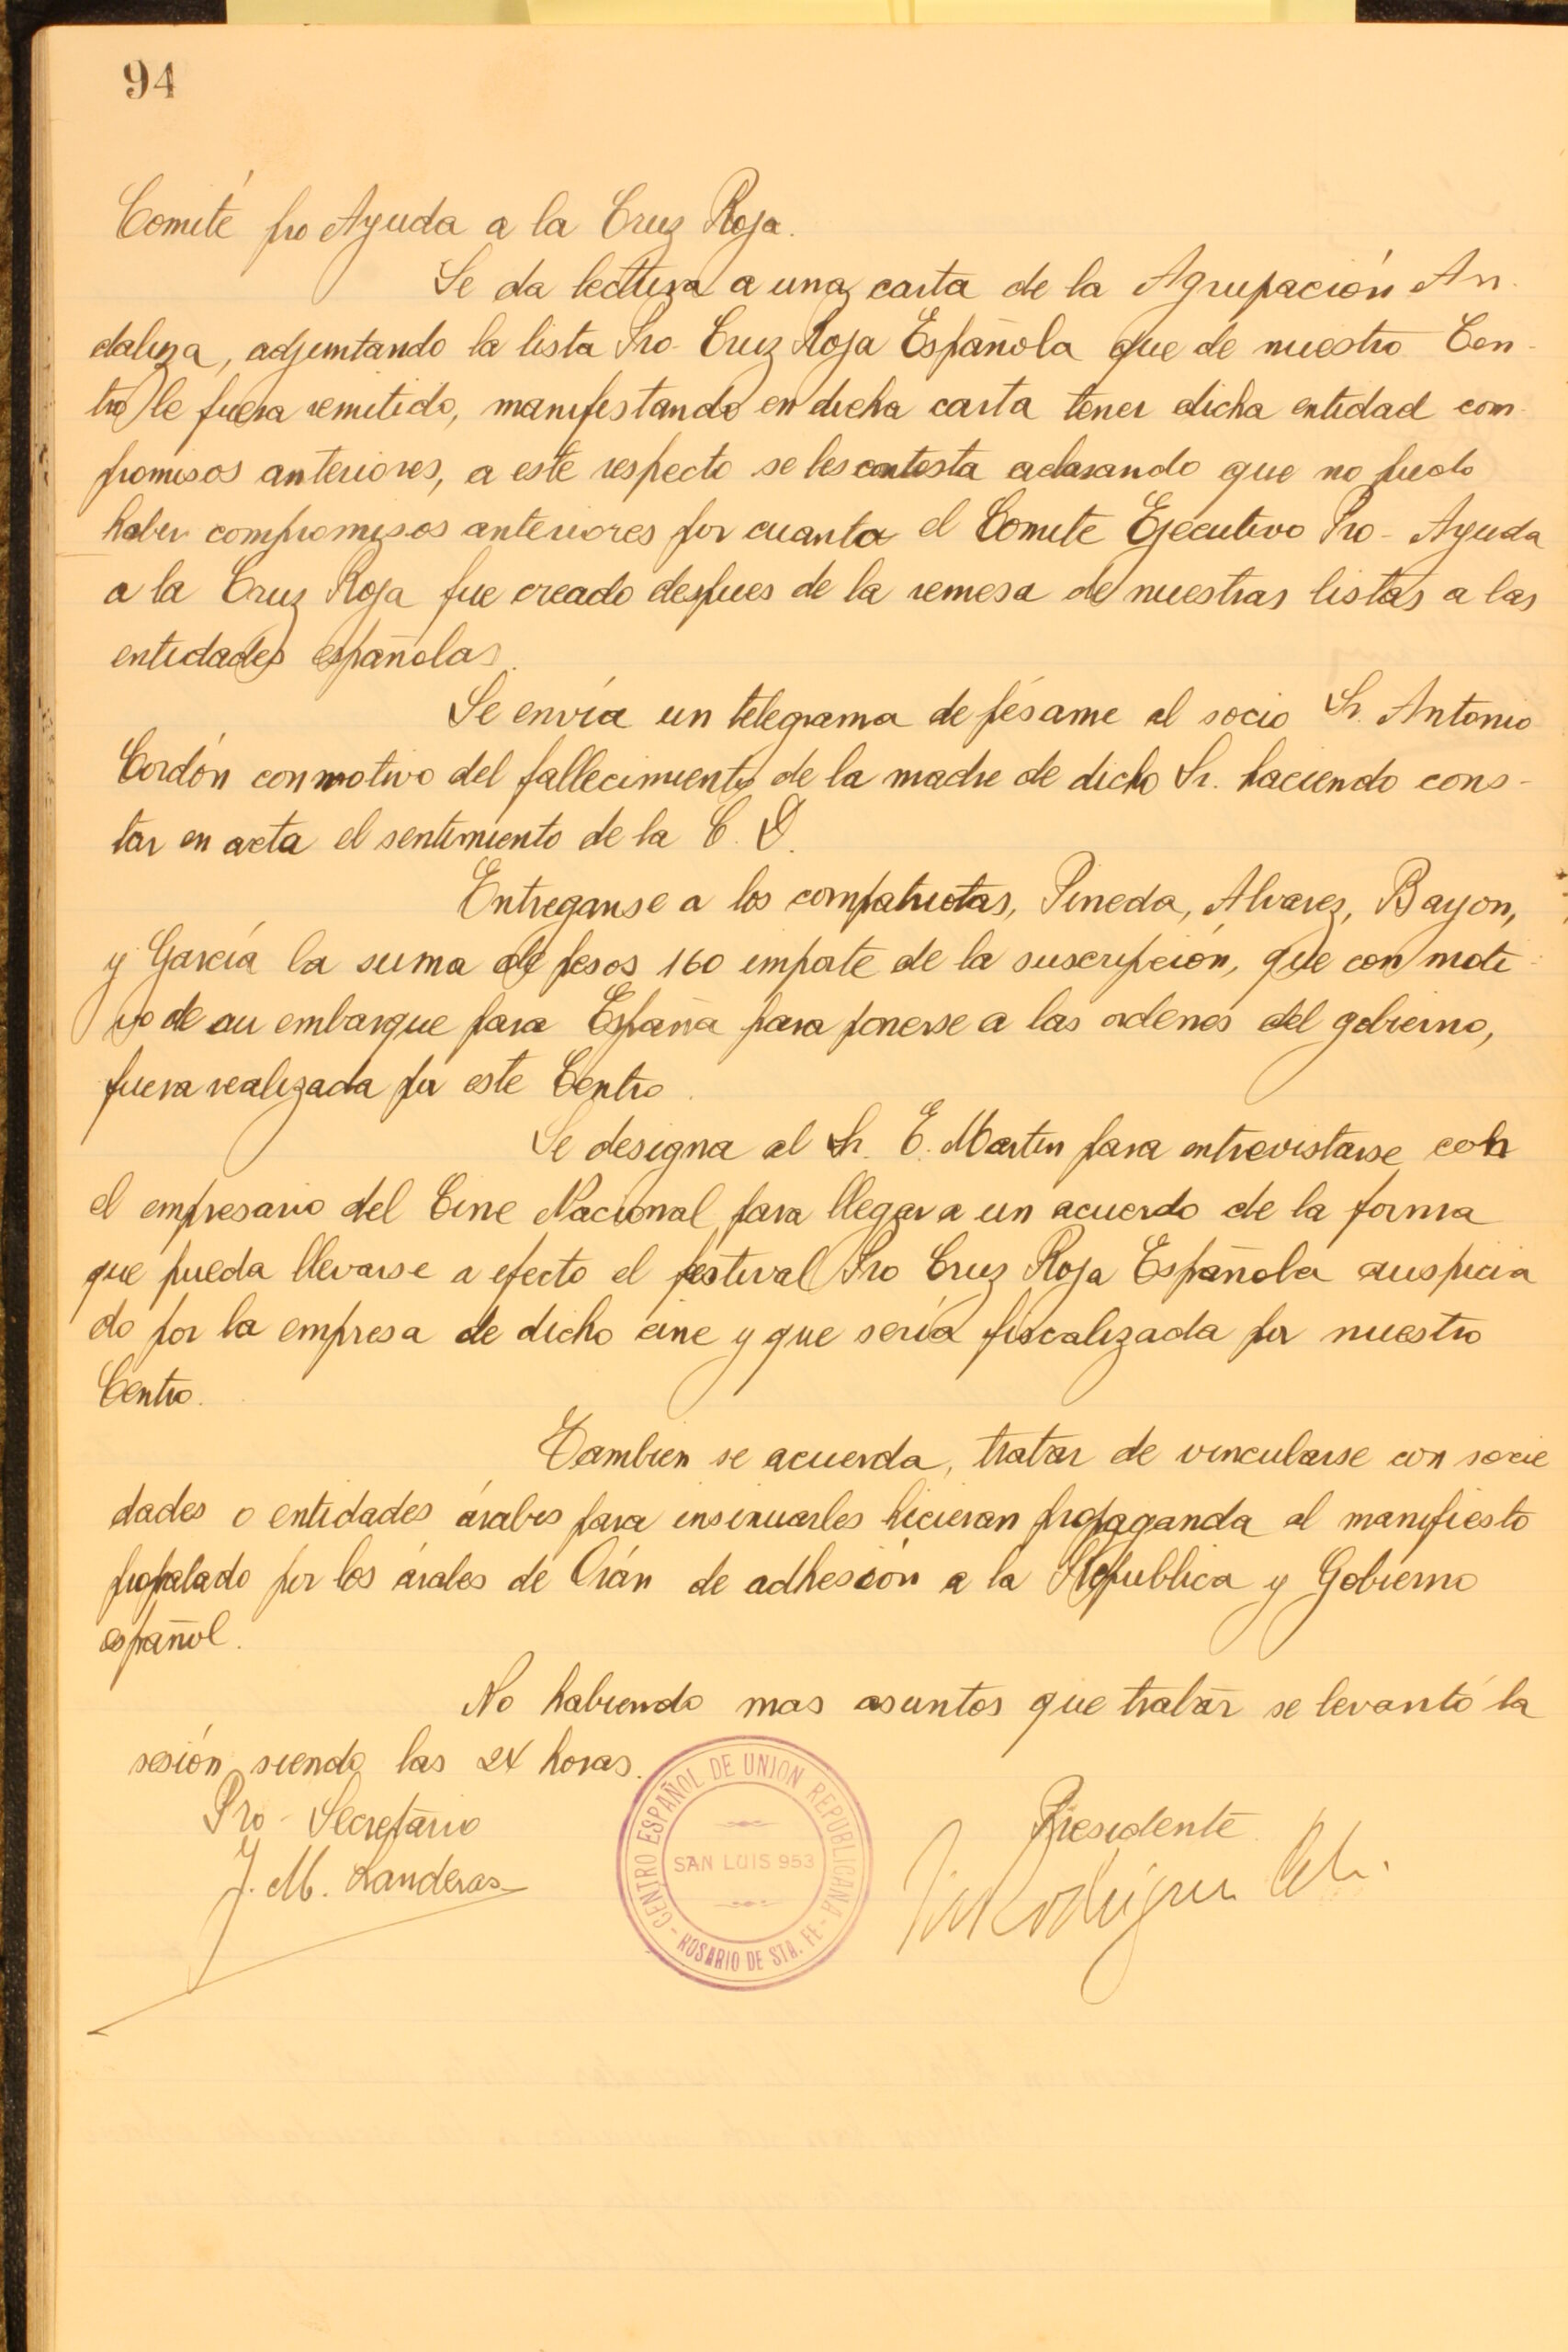 94
Comité pro Ayuda a la Cruz Roja.
Se da lectura a una carta de la Agrupación An-
daluza, adjuntando la lista Pro-Cruz Roja Española que de nuestro Cen-
tro le fuera remitido, manifestando en dicha carta tener dicha entidad com-
promisos anteriores, a este respecto se les contesta aclarando que no pudo
haber compromisos anteriores por cuanto el Comite Ejecutivo Pro-Ayuda
a la Cruz Roja fue creado despues de la remesa de nuestras listas a las
entidades españolas.
Se envía un telegrama de pésame al socio Sr. Antonio
Cordón con motivo del fallecimiento de la madre de dicho Sr. haciendo cons-
tar en acta el sentimiento de la C. D.
Entreganse a los compatriotas, Pineda, Alvarez, Bayon,
y García la suma de pesos 160 importe de la suscripción, que con moti-
vo de su embarque para España para ponerse a las ordenes del gobierno,
fuera realizada por este Centro.
Se designa al Sr. E. Martin para entrevistarse con
el empresario del Cine Nacional para llegar a un acuerdo de la forma
que pueda llevarse a efecto el festival Pro Cruz Roja Española auspicia
do por la empresa de dicho cine y que sería fiscalizada por nuestro
Centro.
Tambien se acuerda, tratar de vincularse con socie
dades o entidades árabes para insinuarles hicieran propaganda al manifiesto
propalado por los árabes de Orán de adhesión a la Republica y Gobierno
español.
No habiendo mas asuntos que tratar se levantó la
sesión siendo las 24 horas.
Pro-Secretario
J. M. Landeras
CENTRO ESPAÑOL DE UNION REPUBLICANA
SAN LUIS 953
- ROSARIO DE STA. FE -
Presidente
Rodriguez